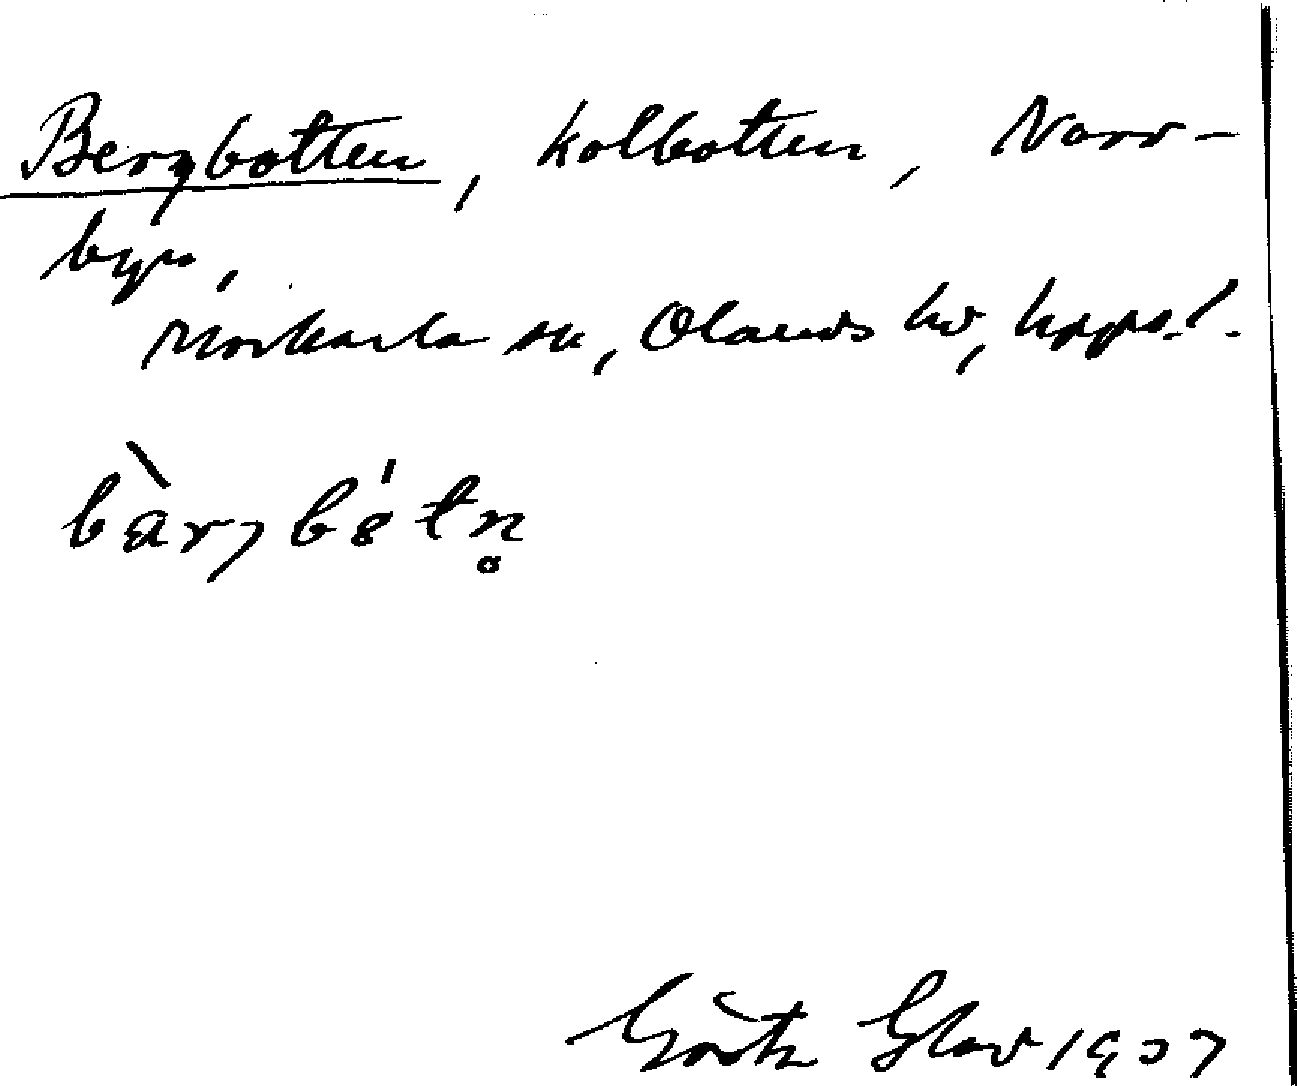 Bergbotten, kolbotten, Norr-
byn,
Morkarla sn, Olands hd, Upps. l.
bàrgbotn
Gösta 1907